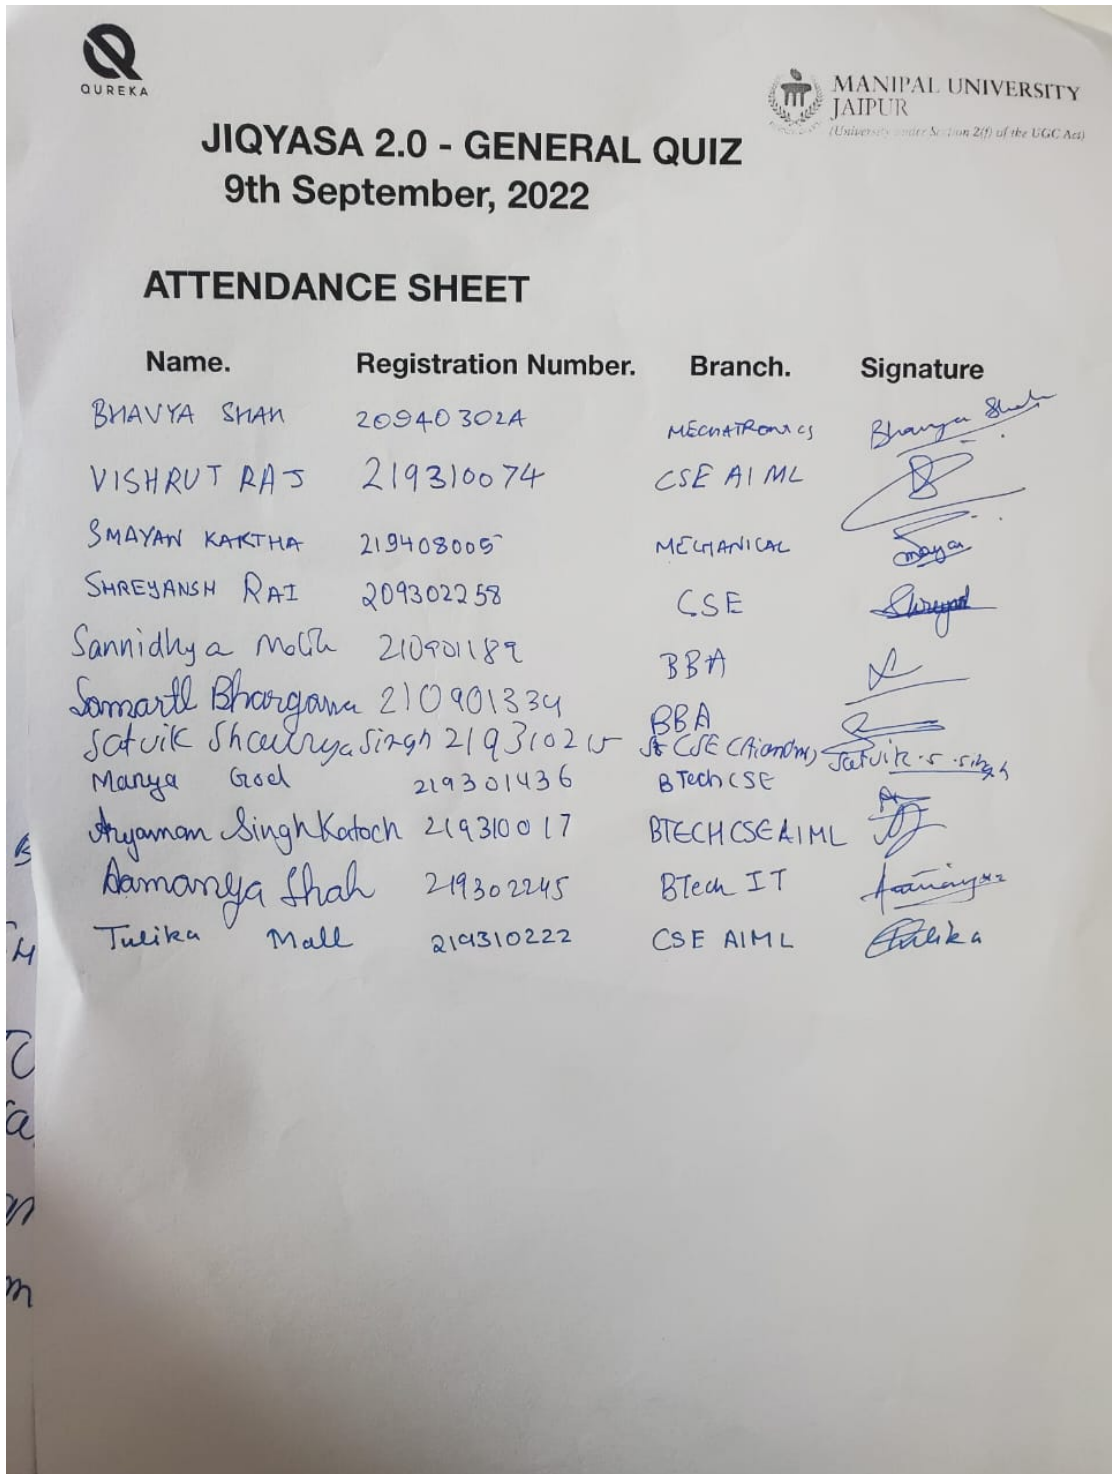 QUREKA
MANIPAL UNIVERSITY
JAIPUR
(University under Section 2(f) of the UGC Act)
JIQYASA 2.0 - GENERAL QUIZ
9th September, 2022
ATTENDANCE SHEET
Name. Registration Number. Branch. Signature
BHAVYA SHAH 209403024 MECHATRONICS Bhavya Shah
VISHRUT RAJ 219310074 CSE AI ML
SMAYAN KARTHA 219408005 MECHANICAL
SHREYANSH RAI 209302258 CSE
Sannidhya 210901189 BBA
Samarth Bhargava 210901334 BBA
Satvik Shaurya Singh 219310215 CSE Satvik.S.Singh
Manya Goel 219301436 BTech CSE
Aryaman Singh Katoch 219310017 BTECH CSE AIML
Aamanya Shah 219302245 BTech IT
Tulika Mall 219310222 CSE AIML Tulika